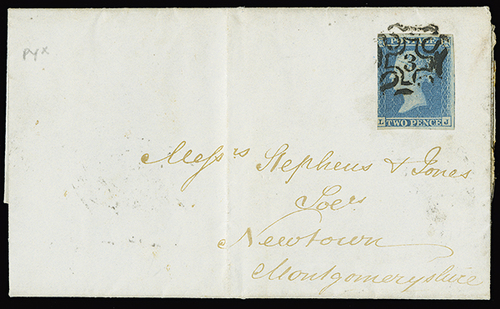 pyx
3
L TWO PENCE J
Messrs Stephens & Jones
Newtown
Montgomeryshire